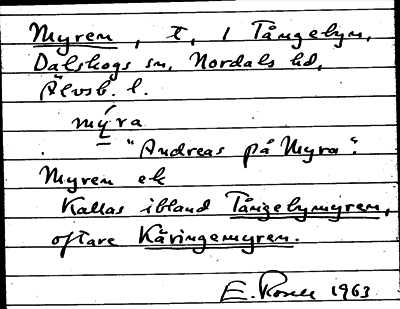 Myren, t, 1 Tångebyn,
Dalskogs sn, Nordals hd,
Älvsb. l.
mýra
"Andreas på Myra".
Myren ek
Kallas ibland Tångebymyren,
oftare Käringemyren.
E. Rosell 1963